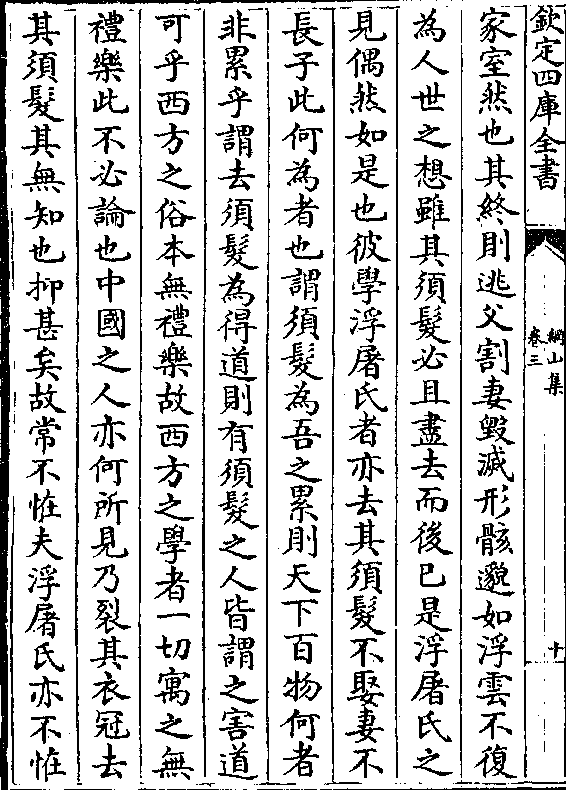 欽定四庫全書
網山集
卷三
十
家室然也其終則逃父割妻毀滅形骸邈如浮雲不復
為人世之想雖其須髮必且盡去而後已是浮屠氏之
見偶然如是也彼學浮屠氏者亦去其須髮不娶妻不
長子此何為者也謂須髮為吾之累則天下百物何者
非累乎謂去須髮為得道則有須髮之人皆謂之害道
可乎西方之俗本無禮樂故西方之學者一切寓之無
禮樂此不必論也中國之人亦何所見乃裂其衣冠去
其須髮其無知也抑甚矣故常不恠夫浮屠氏亦不恠